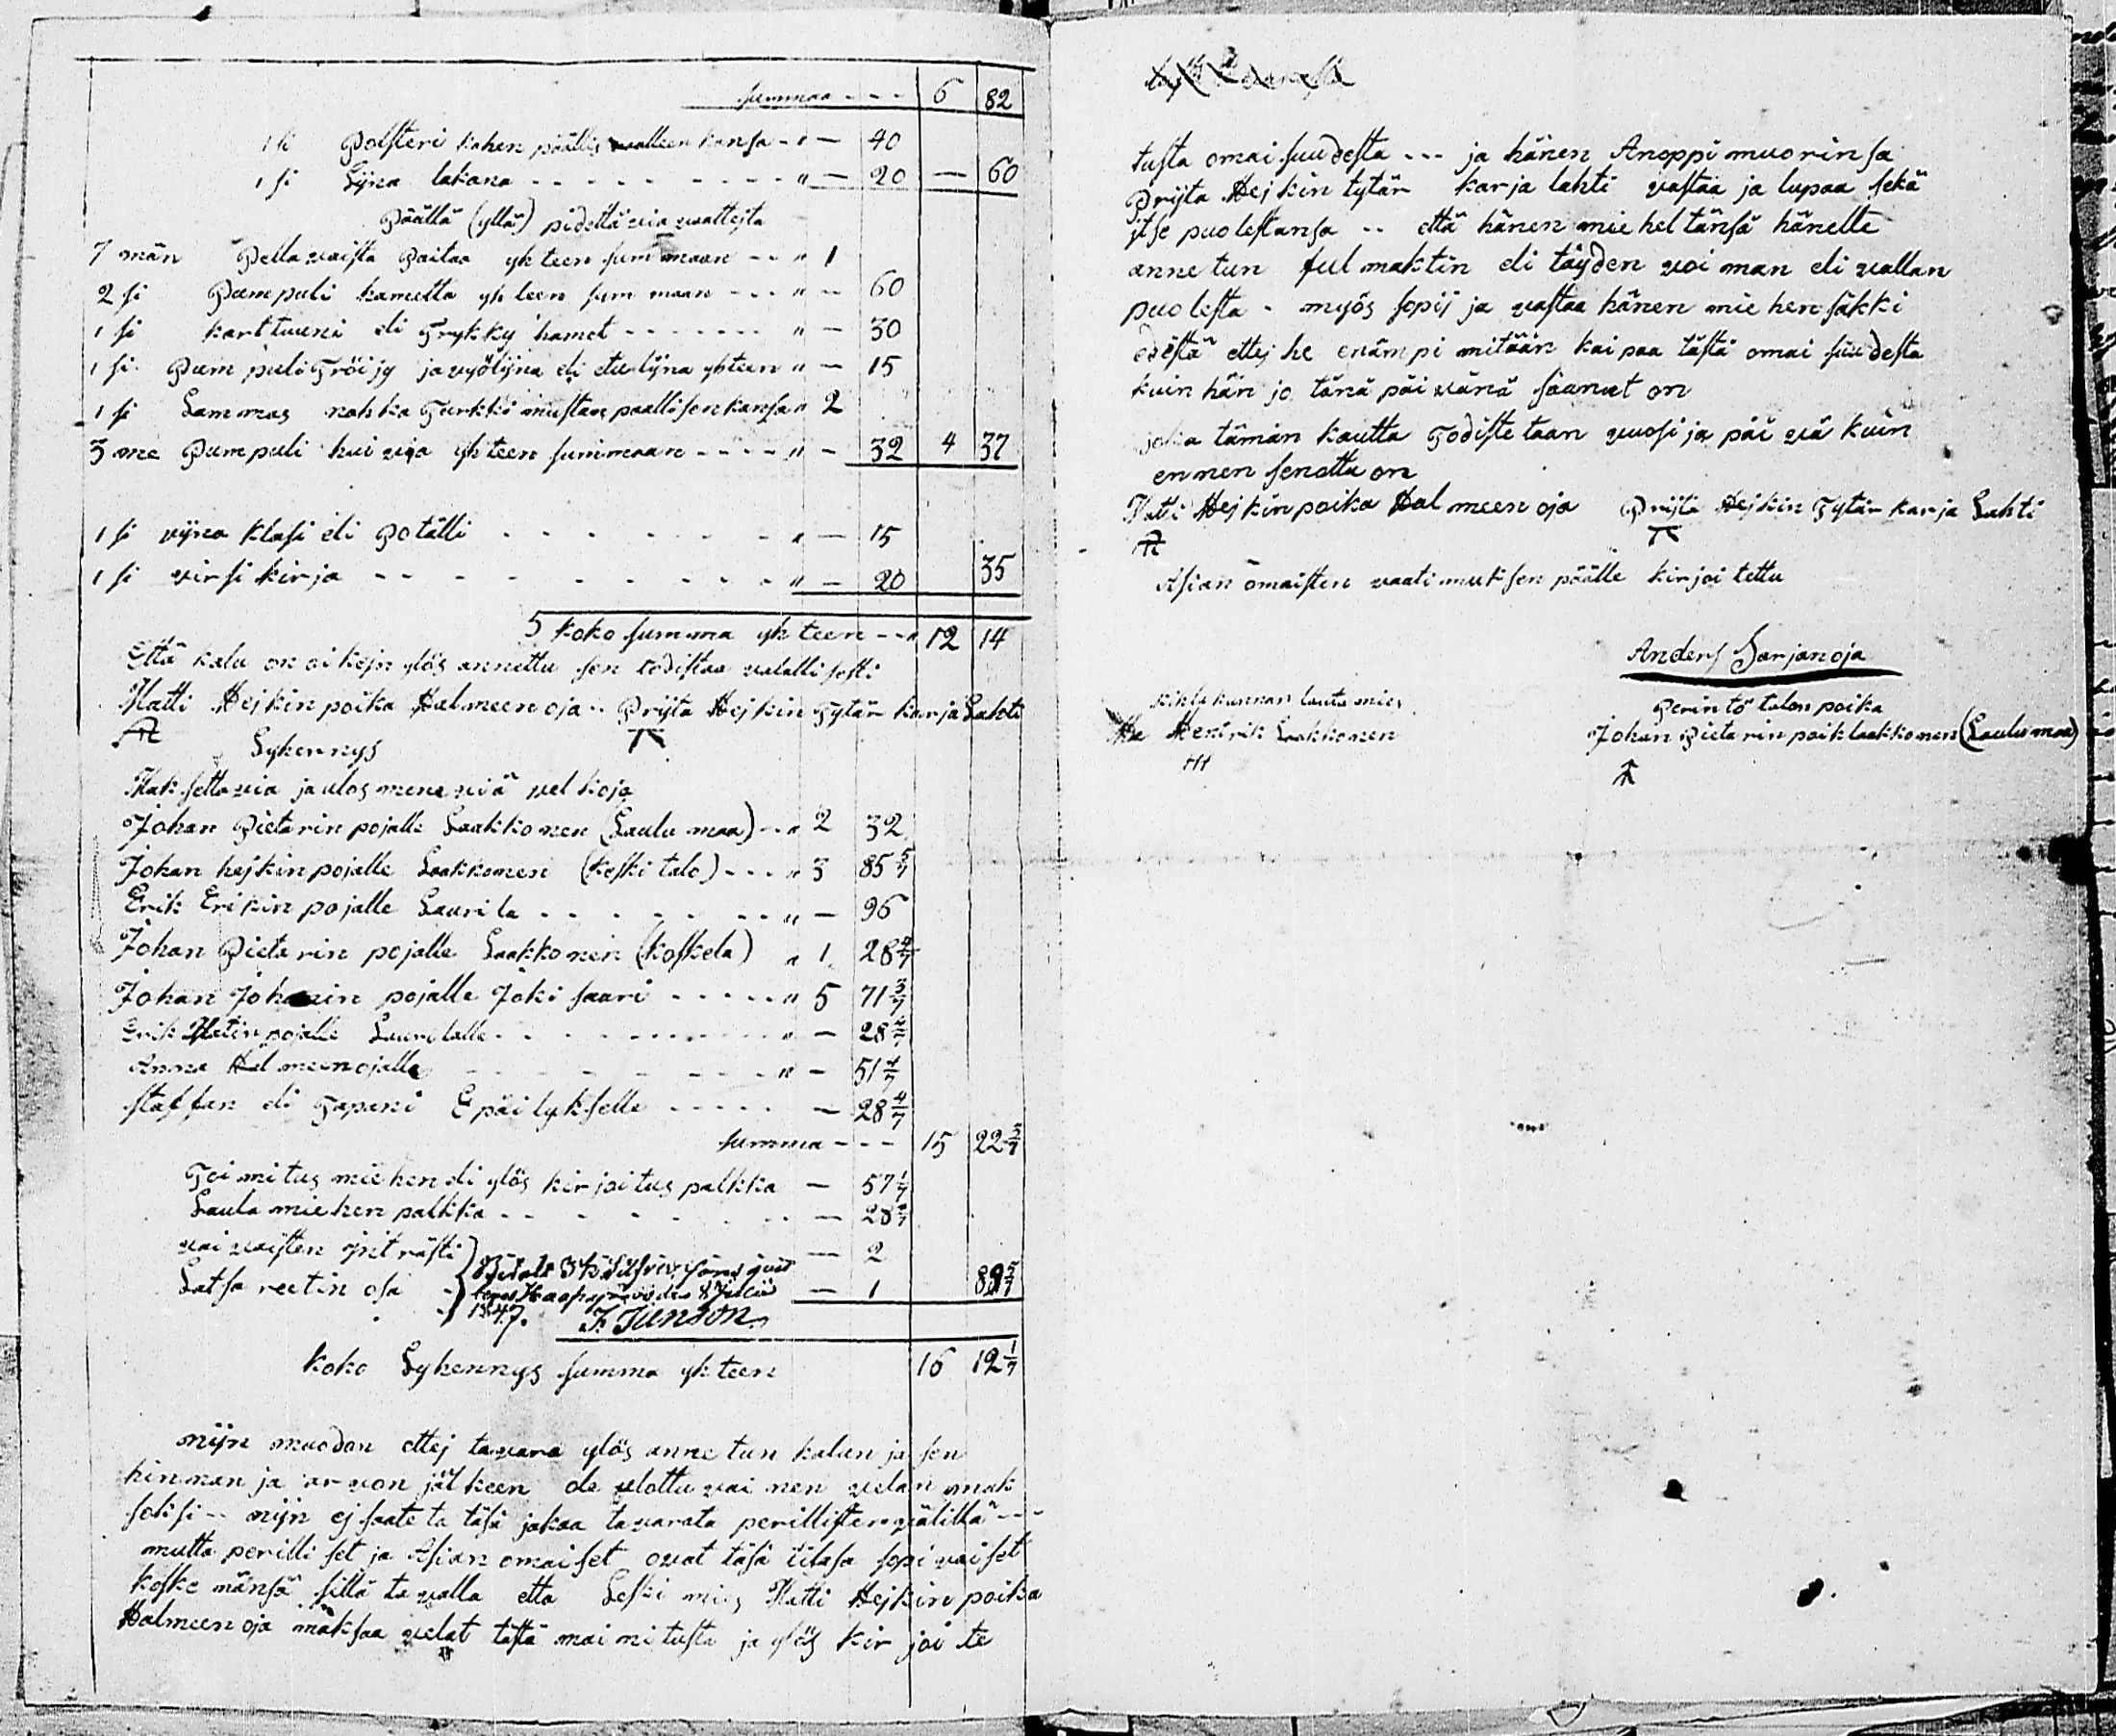 summaa - - - 6 82
1 si Polsteri kahen päällis waatteen kansa - " — 40
1 si Lijna lakana - - - - - - - - " — 20 — 60
Päällä (yllä) pidettäwia waatteita
7 män Pellawaista Paitaa yhteen summaan - - " 1
2 si Pumpuli hametta yhteen summaan - - - " — 60
1 si karttuuni eli Trykky hamet - - - - - - " — 30
1 si Pumpuli Tröijy ja wyölijna eli etulijna yhteen " — 15
1 si Lammas nahka Turkki mustan paallisen kansa " 2
3 me Pumpuli huiwia yhteen summaan - - - - " — 32 4 37
1 si wijna klasi eli Potälli - - - - - - - " — 15
1 si virsi kirja - - - - - - - - - - " — 20 35
5 koko summa yhteen - - " 12 14
Että kalu on oikejn ylös annettu sen todistaa walallisesti
Matti Hejkin poika Halmeenoja - - Prijta Hejkin Tytär karja Lahti
Lyhennys
Maksettawia ja ulos menewiä welkoja
Johan Pietarin pojalle Laakkonen (Laulumaa) - - " 2 32
Johan hejkin pojalle Laakkonen (keski talo) - - - " 3 85 5/7
Erik Erikin pojalle Laurila - - - - - - - " — 96
Johan Pietarin pojalle Laakkonen (koskela) " 1 28 4/7
Johan Johanin pojalle Joki saari - - - - - " 5 71 3/7
Erik Matin pojalle Laurilalle - - - - - - - - " — 28 4/7
Anna Halmeenojalle - - - - - - - " — 51 4/7
Staffan eli Tapani Epäilykselle - - - - - — 28 4/7
summa - - - 15 22 3/7
Toimitus miehen eli ylös kirjoitus palkka — 57 1/7
Lauta miehen palkka - - - - - - - — 28 4/7
waiwaisten sinträsti — 2
Latsareetin osa — 1 89 5/7
1847. F. Junson
koko Lyhennys summa yhteen 16 12 1/7
nijn muodon ettej tawara ylös annetun kalun ja sen
hinnan ja arwon jälkeen ole ulottuwainen welan mak
soksi - - nijn ej saateta täsä jakaa tawarata perillisten wälillä - - -
mutta perilliset ja Asian omaiset owat täsä tilasa sopiwaiset
keskenänsä sillä tawalla etta Leski mies Matti Hejkin poika
Halmeenoja maksaa welat tästä mainitusta ja ylös kirjoite
tusta omaisuudesta - - - ja hänen Anoppimuorinsa
Prijta Hejkin tytär karja lahti vastaa ja lupaa sekä
itse puolestansa - - että hänen mieheltänsä hänelle
annetun fulmaktin eli täyden woiman eli wallan
puolesta - myös sopij ja vastaa hänen miehensäkki
edestä ettej he enämpi mitään kaipaa tästä omaisuudesta
kuin hän jo tänä päiwänä saanut on
joka tämän kautta Todistetaan wuosi ja päiwä kuin
ennen senottu on
Matti Hejkin poika Halmeenoja Prijta Hejkin Tytär karja Lahti
Asian omaisten waatimuksen päälle kirjoitettu
Anders Sarjanoja
kihlakunnan lautamies
Hentrik Laakkonen
Perintö talon poika
Johan Pietarin poik laakkonen (Laulumaa)